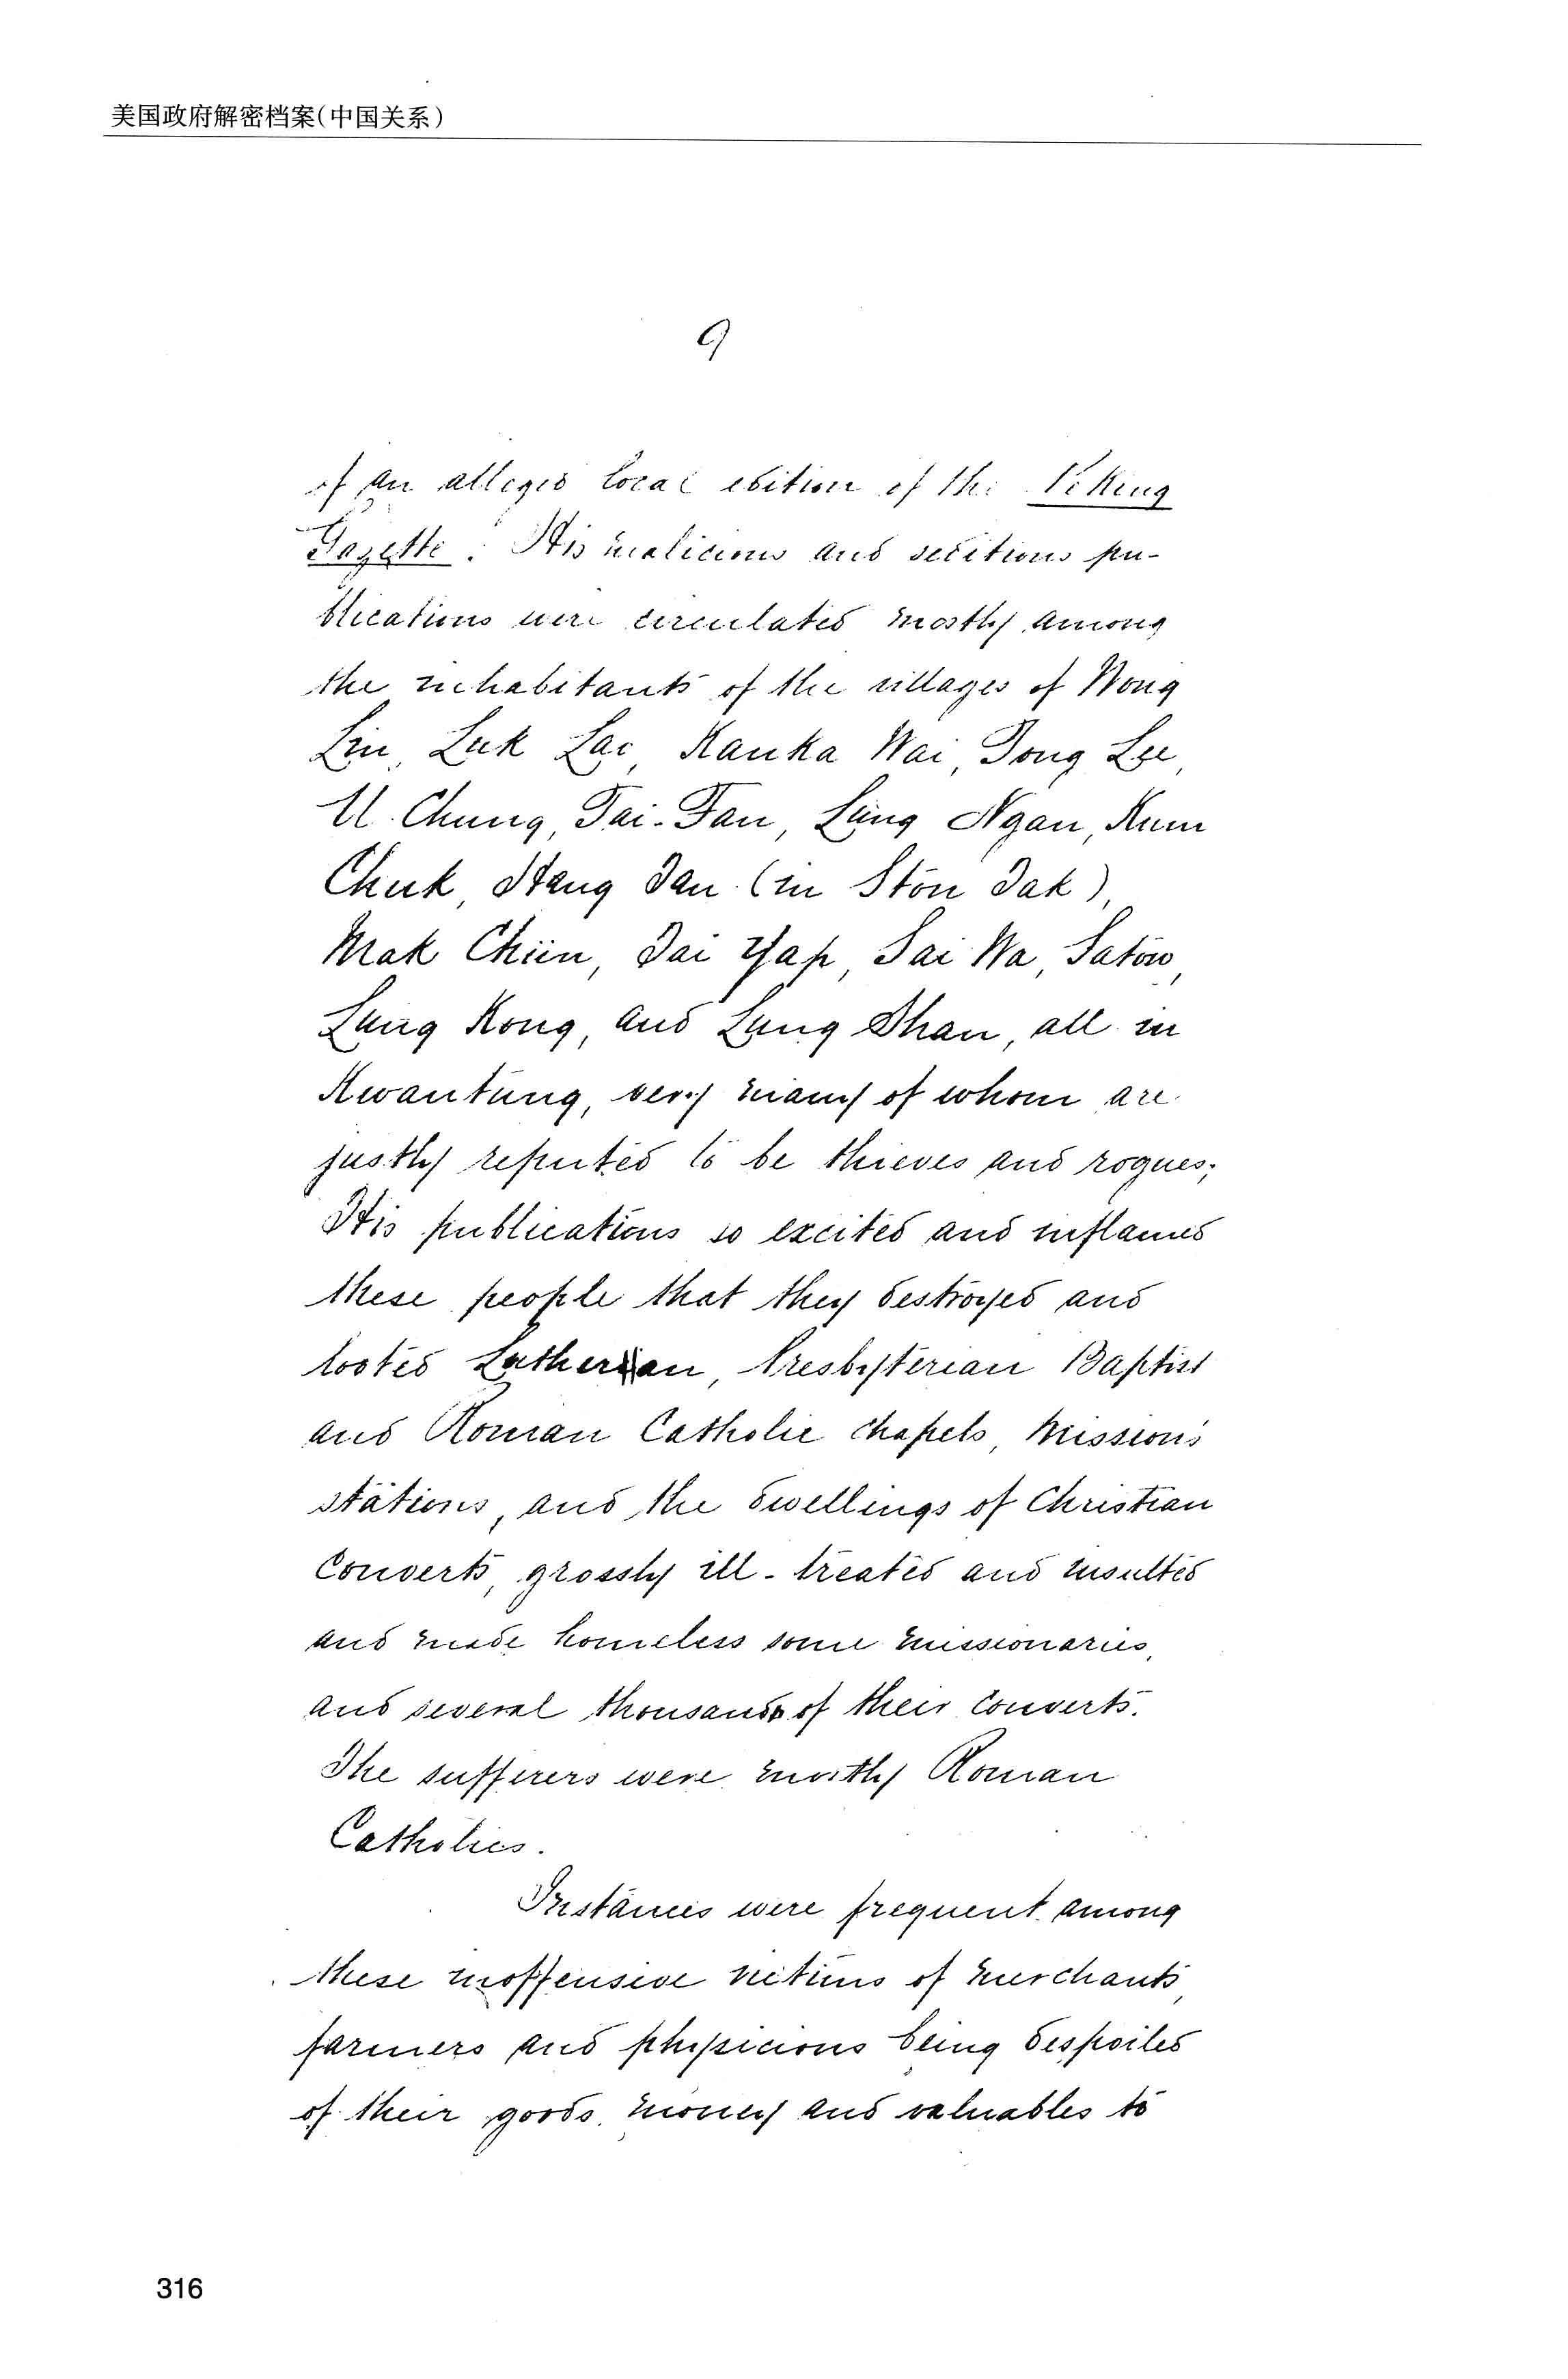 美国政府解密档案(中国关系)
9
of an alleged local edition of the Peking
Gazette. His malicious and seditious pu-
blications were circulated mostly among
the inhabitants of the villages of Wong
Lin, Luk Lac, Kanka Wai, Tong Lee,
U Chung, Tai-Fan, Lung Ngan, Kum
Chuk, Hang Tan (in Ston Tak),
Mak Chün, Tai Yap, Sai Wa, Satow,
Lung Kong, and Lung Shan, all in
Kwantung, very many of whom are
justly reputed to be thieves and rogues;
His publications so excited and inflamed
these people that they destroyed and
looted Lutheran, Presbyterian Baptist
and Roman Catholic chapels, missions
stations, and the dwellings of Christian
converts, grossly ill-treated and insulted
and made homeless some missionaries,
and several thousands of their converts.
The sufferers were mostly Roman
Catholics.
Instances were frequent among
these inoffensive victims of merchants,
farmers and physicians being despoiled
of their goods, money and valuables to
316